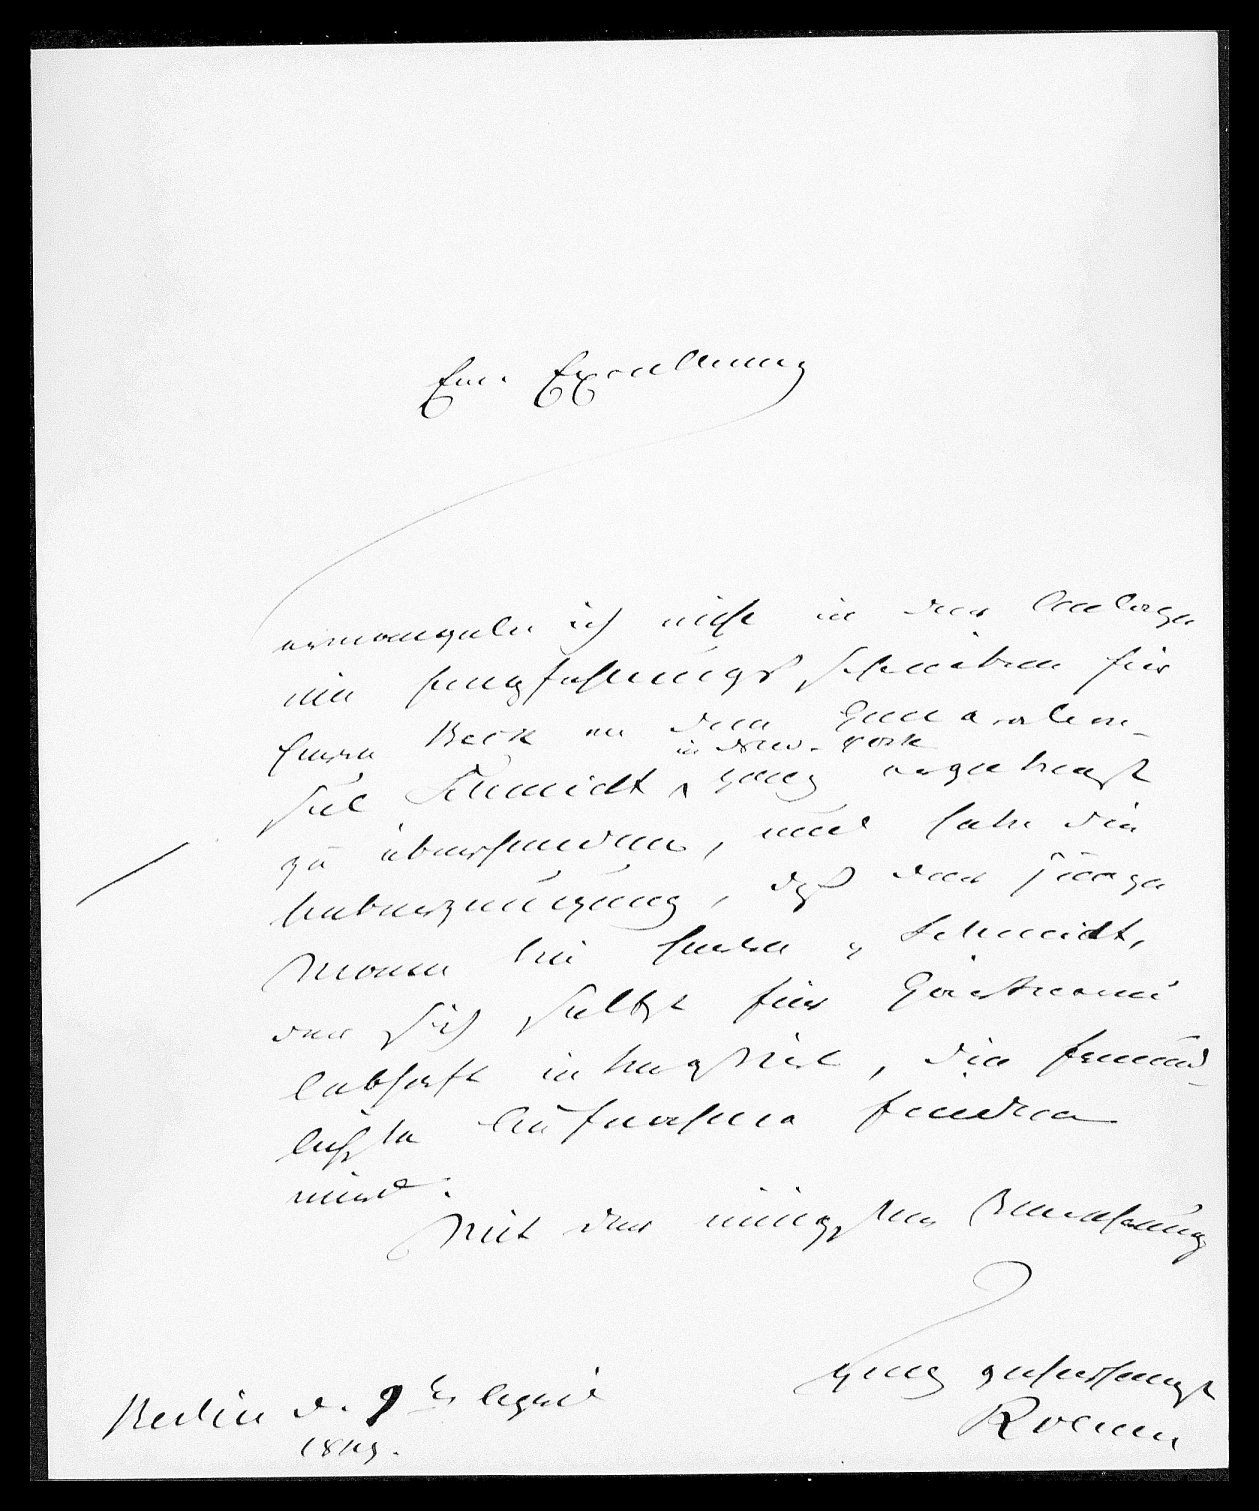 Eur. Excellenz
ermangele ich nicht in der Anlage
ein Empfehlungsschreiben für
Herrn Beck an den General Con-
sul Schmidt in New-York ganz ergebenst
zu übersenden, und habe die
Ueberzeugung, daß der junge
Mann bei Herrn Schmidt,
der sich selbst für Gärtnerei
lebhaft interessirt, die freund-
lichste Aufnahme finden
wird.
Mit der innigsten Verehrung
ganz gehorsamst
Berlin d. 9ten April